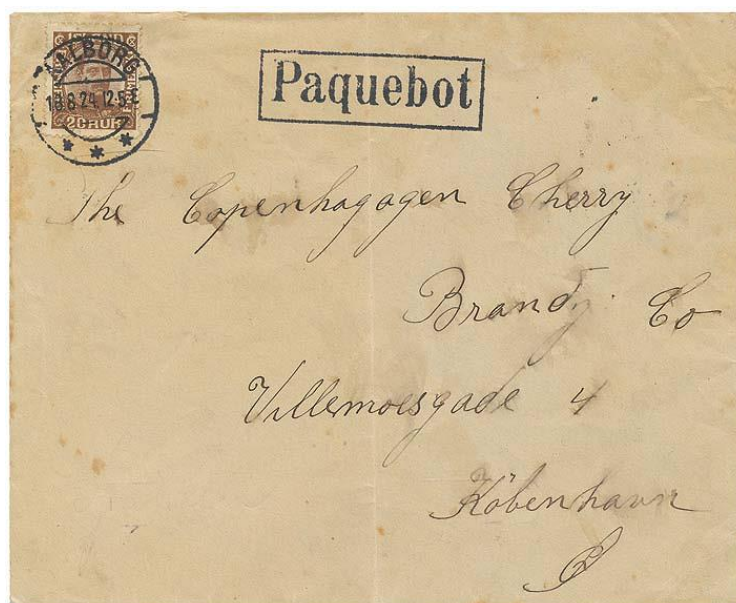 AALBORG
18.8.24.12-5 E
* * *
20 AUR
Paquebot
The Copenhagagen Cherry
Brandy Co
Villemoesgade 4
København
Ø